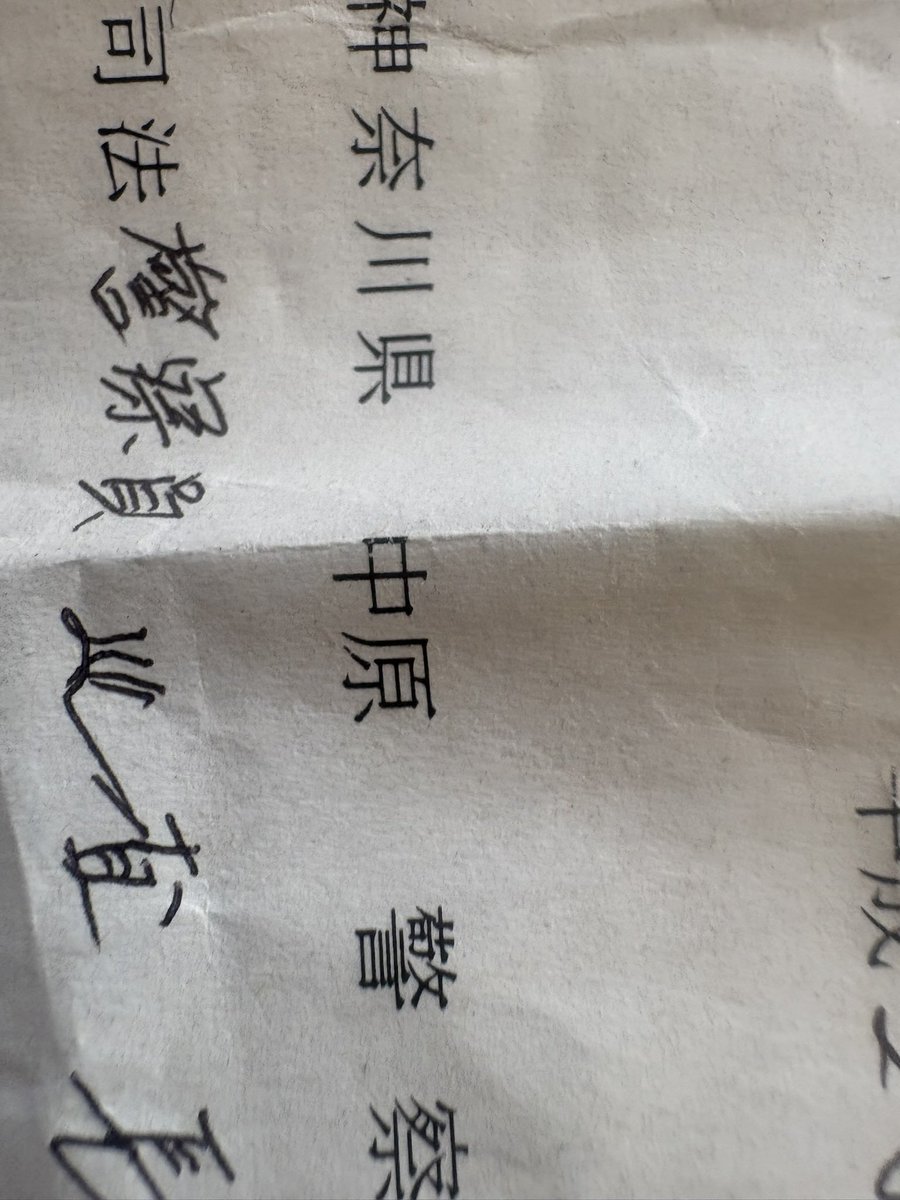 平成20
神奈川県 中原 警察
司法警察員 巡査